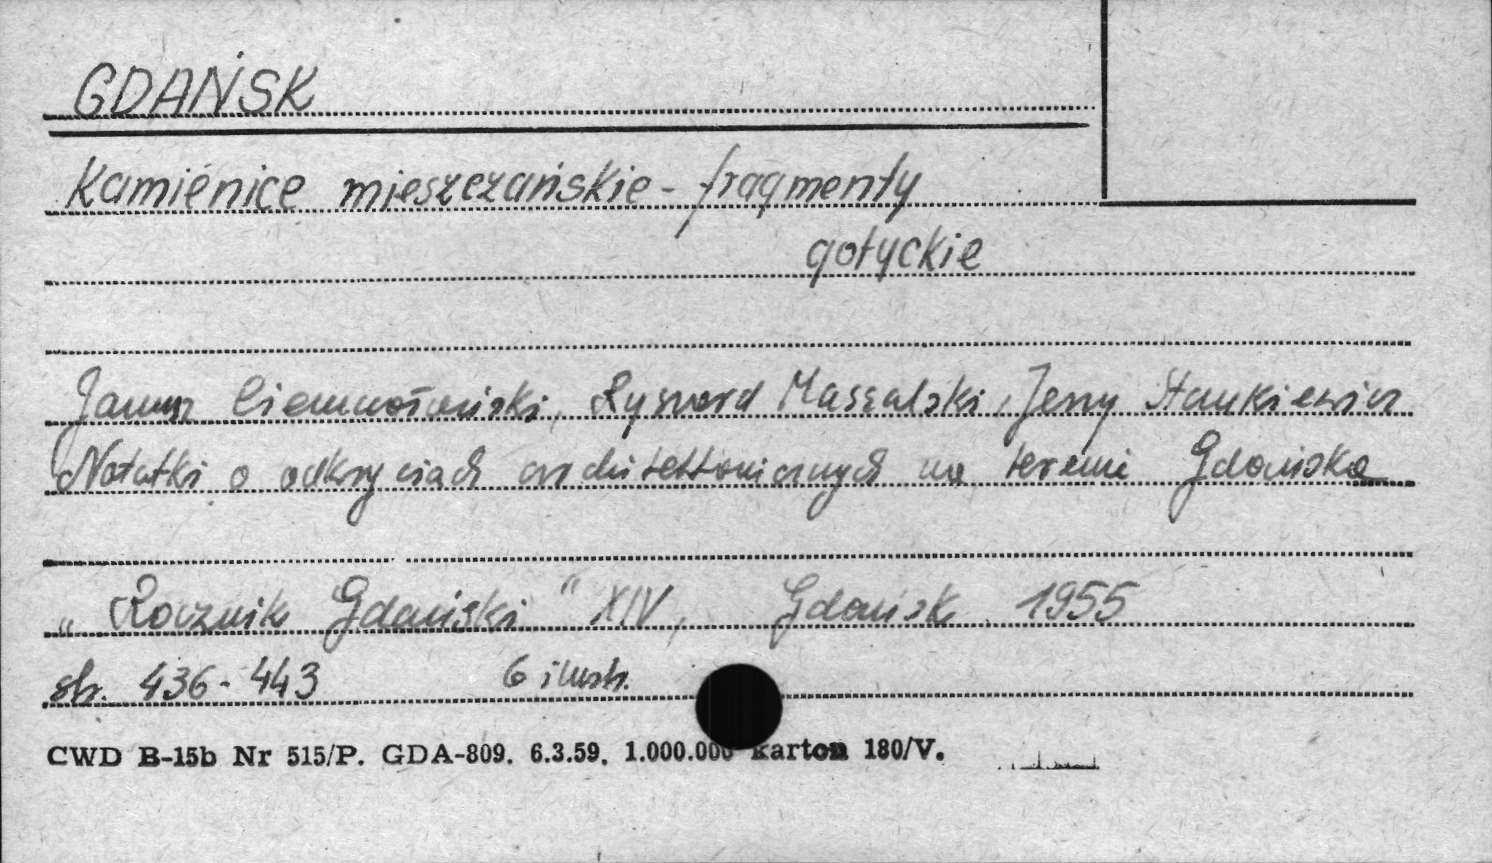 GDAŃSK
Kamienice mieszczańskie - fragmenty
gotyckie
Janusz Ciemnołoński, Ryszard Massalski, Jerzy Stankiewicz
Notatki o odkryciach architektonicznych na terenie Gdańska
„Rocznik Gdański" XIV, Gdańsk 1955
str. 436-443 6 ilustr.
CWD B-15b Nr 515/P. GDA-809. 6.3.59. 1.000.000 karton 180/V.